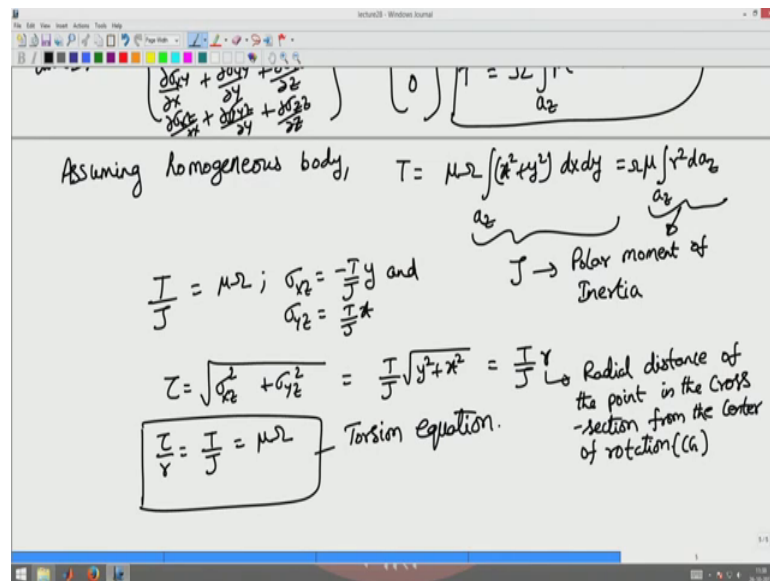 lecture28 - Windows Journal
File Edit View Insert Actions Tools Help
Page Width
B I
∂σxy/∂x + ∂σyy/∂y + ∂z
∂σxz/∂x + ∂σyz/∂y + ∂σzz/∂z
0
T = Ω ∫
az
Assuming homogeneous body, T = μΩ ∫(x²+y²) dxdy = Ωμ ∫r² daz
az az
J → Polar moment of
Inertia
T/J = μΩ ; σxz = -T/J y and
σyz = T/J x
τ = √(σxz² + σyz²) = T/J √(y²+x²) = T/J r
↳ Radial distance of
the point in the cross
-section from the center
of rotation (CG)
τ/r = T/J = μΩ — Torsion equation.
5/5